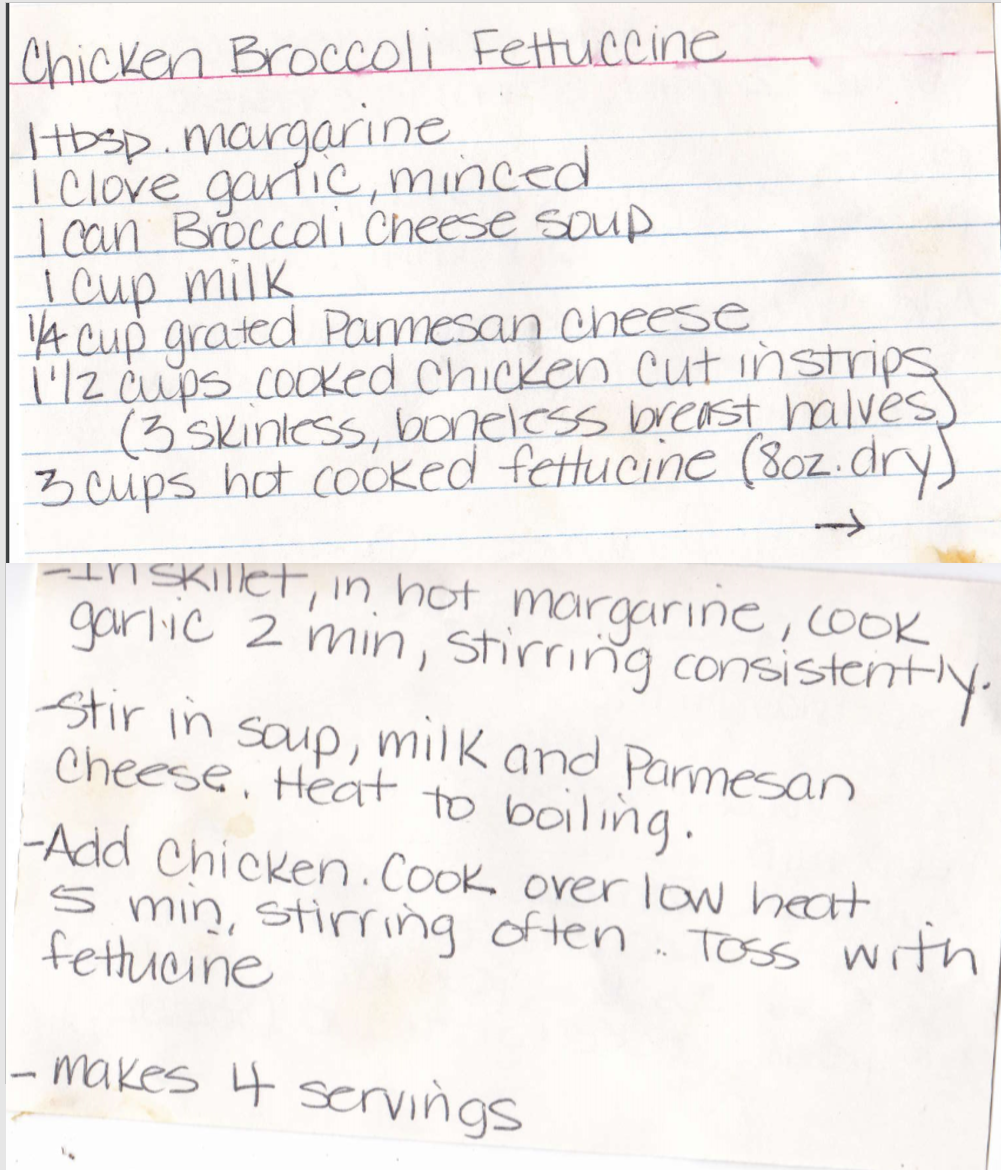 Chicken Broccoli Fettuccine
1 tbsp. margarine
1 clove garlic, minced
1 can Broccoli Cheese soup
1 cup milk
1/4 cup grated Parmesan cheese
1 1/2 cups cooked chicken cut in strips
(3 skinless, boneless breast halves)
3 cups hot cooked fettucine (8oz. dry)
→
-In skillet, in hot margarine, cook
garlic 2 min, stirring consistently.
-Stir in soup, milk and Parmesan
cheese. Heat to boiling.
-Add chicken. Cook over low heat
5 min, stirring often. Toss with
fettucine
- makes 4 servings